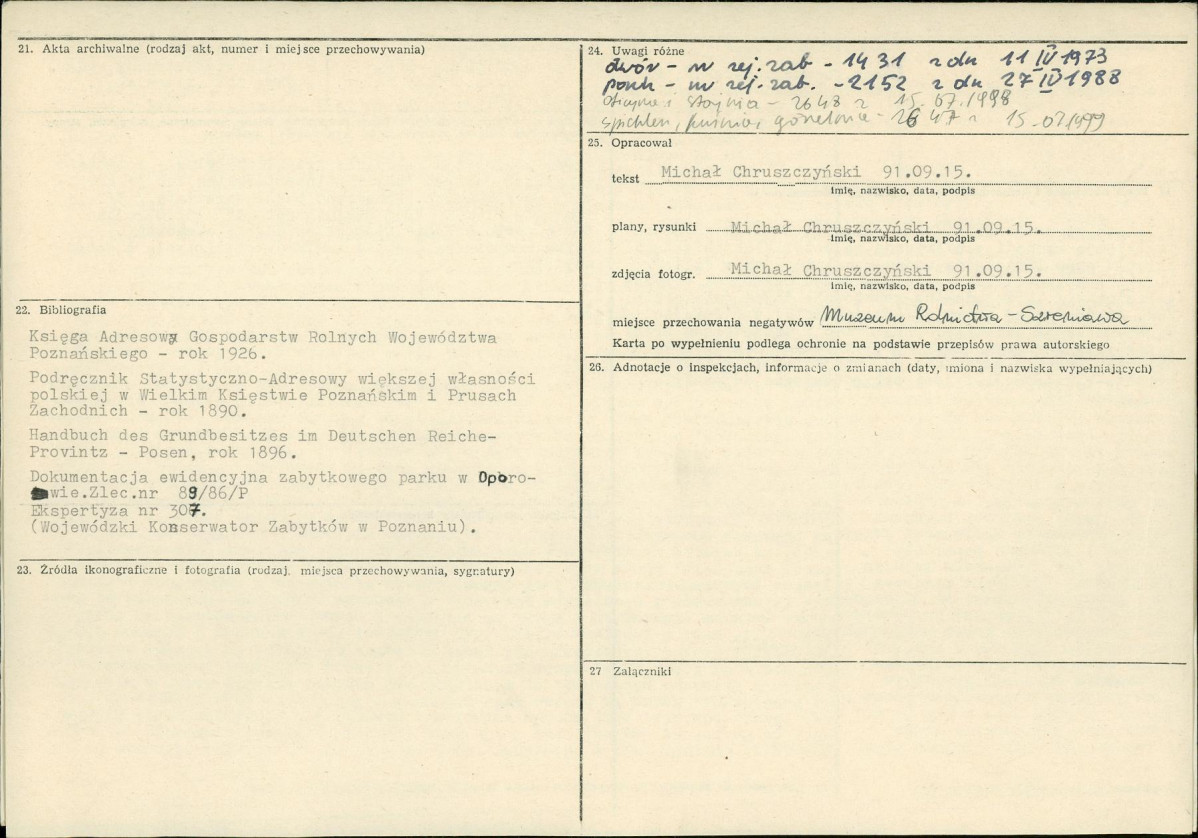 21. Akta archiwalne (rodzaj akt, numer i miejsce przechowywania)
22. Bibliografia
Księga Adresowa Gospodarstw Rolnych Województwa
Poznańskiego - rok 1926.
Podręcznik Statystyczno-Adresowy większej własności
polskiej w Wielkim Księstwie Poznańskim i Prusach
Zachodnich - rok 1890.
Handbuch des Grundbesitzes im Deutschen Reiche-
Provintz - Posen, rok 1896.
Dokumentacja ewidencyjna zabytkowego parku w Oporo-
wie.Zlec.nr 89/86/P
Ekspertyza nr 307.
(Wojewódzki Konserwator Zabytków w Poznaniu).
23. Źródła ikonograficzne i fotografia (rodzaj, miejsca przechowywania, sygnatury)
24. Uwagi różne
dwór - nr rej. zab - 1431 z dn 11 IV 1973
park - nr rej. zab. - 2152 z dn 27 IV 1988
stajnia - 2648 z 15.07.1998
spichlerz, kuźnia, gorzelnia - 2647 z 15.07.1999
25. Opracował
tekst Michał Chruszczyński 91.09.15.
imię, nazwisko, data, podpis
plany, rysunki Michał Chruszczyński 91.09.15.
imię, nazwisko, data, podpis
zdjęcia fotogr. Michał Chruszczyński 91.09.15.
imię, nazwisko, data, podpis
miejsce przechowania negatywów Muzeum Rolnictwa - Szreniawa
Karta po wypełnieniu podlega ochronie na podstawie przepisów prawa autorskiego
26. Adnotacje o inspekcjach, informacje o zmianach (daty, imiona i nazwiska wypełniających)
27 Załączniki